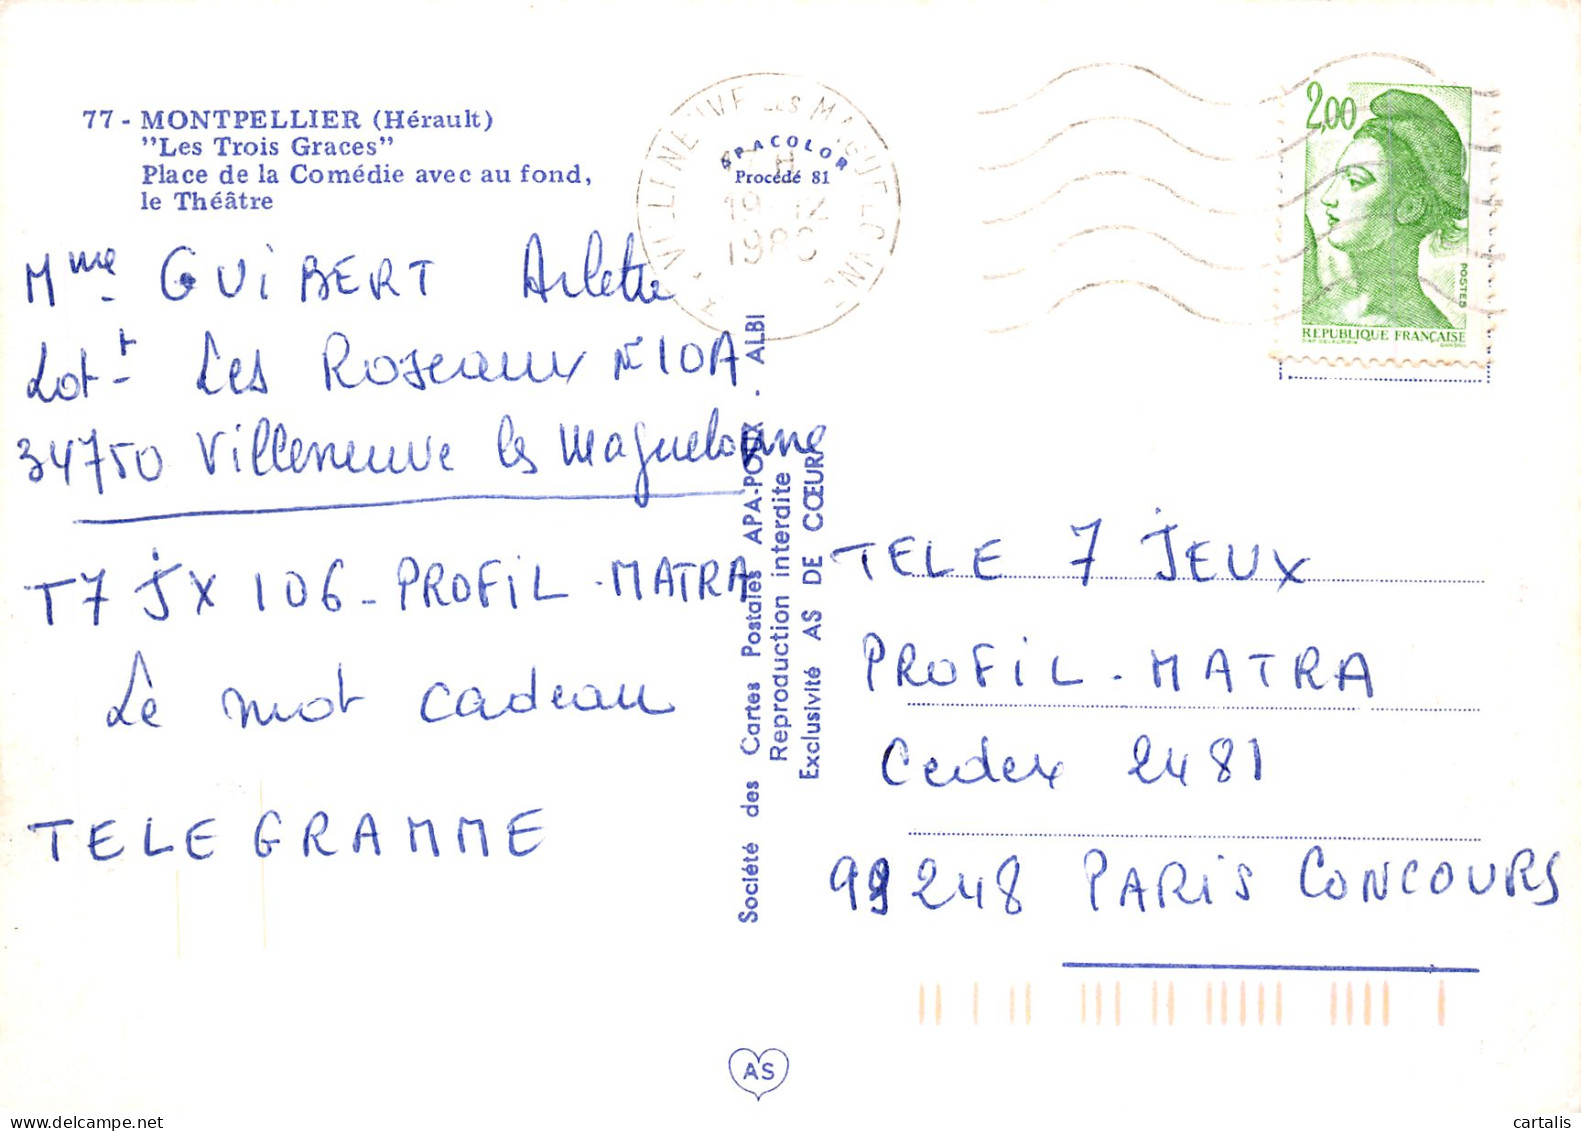 77 - MONTPELLIER (Hérault)
"Les Trois Graces"
Place de la Comédie avec au fond,
le Théâtre
Mme GUIBERT Arlette
Lot-t Les Roseaux N°10A
34750 Villeneuve les Maguelonne
T7 JX 106 - PROFIL - MATRA
Le mot cadeau
TELEGRAMME
VILLENEUVE Les MAGUELONNE
APACOLOR
Procédé 81
19 - 12
Société des Cartes Postales APA-POUX - ALBI
Reproduction interdite
Exclusivité AS DE CŒUR
2,00
POSTES
REPUBLIQUE FRANÇAISE
TELE 7 JEUX
PROFIL - MATRA
Cedex 2481
99248 PARIS CONCOURS
AS
cartalis